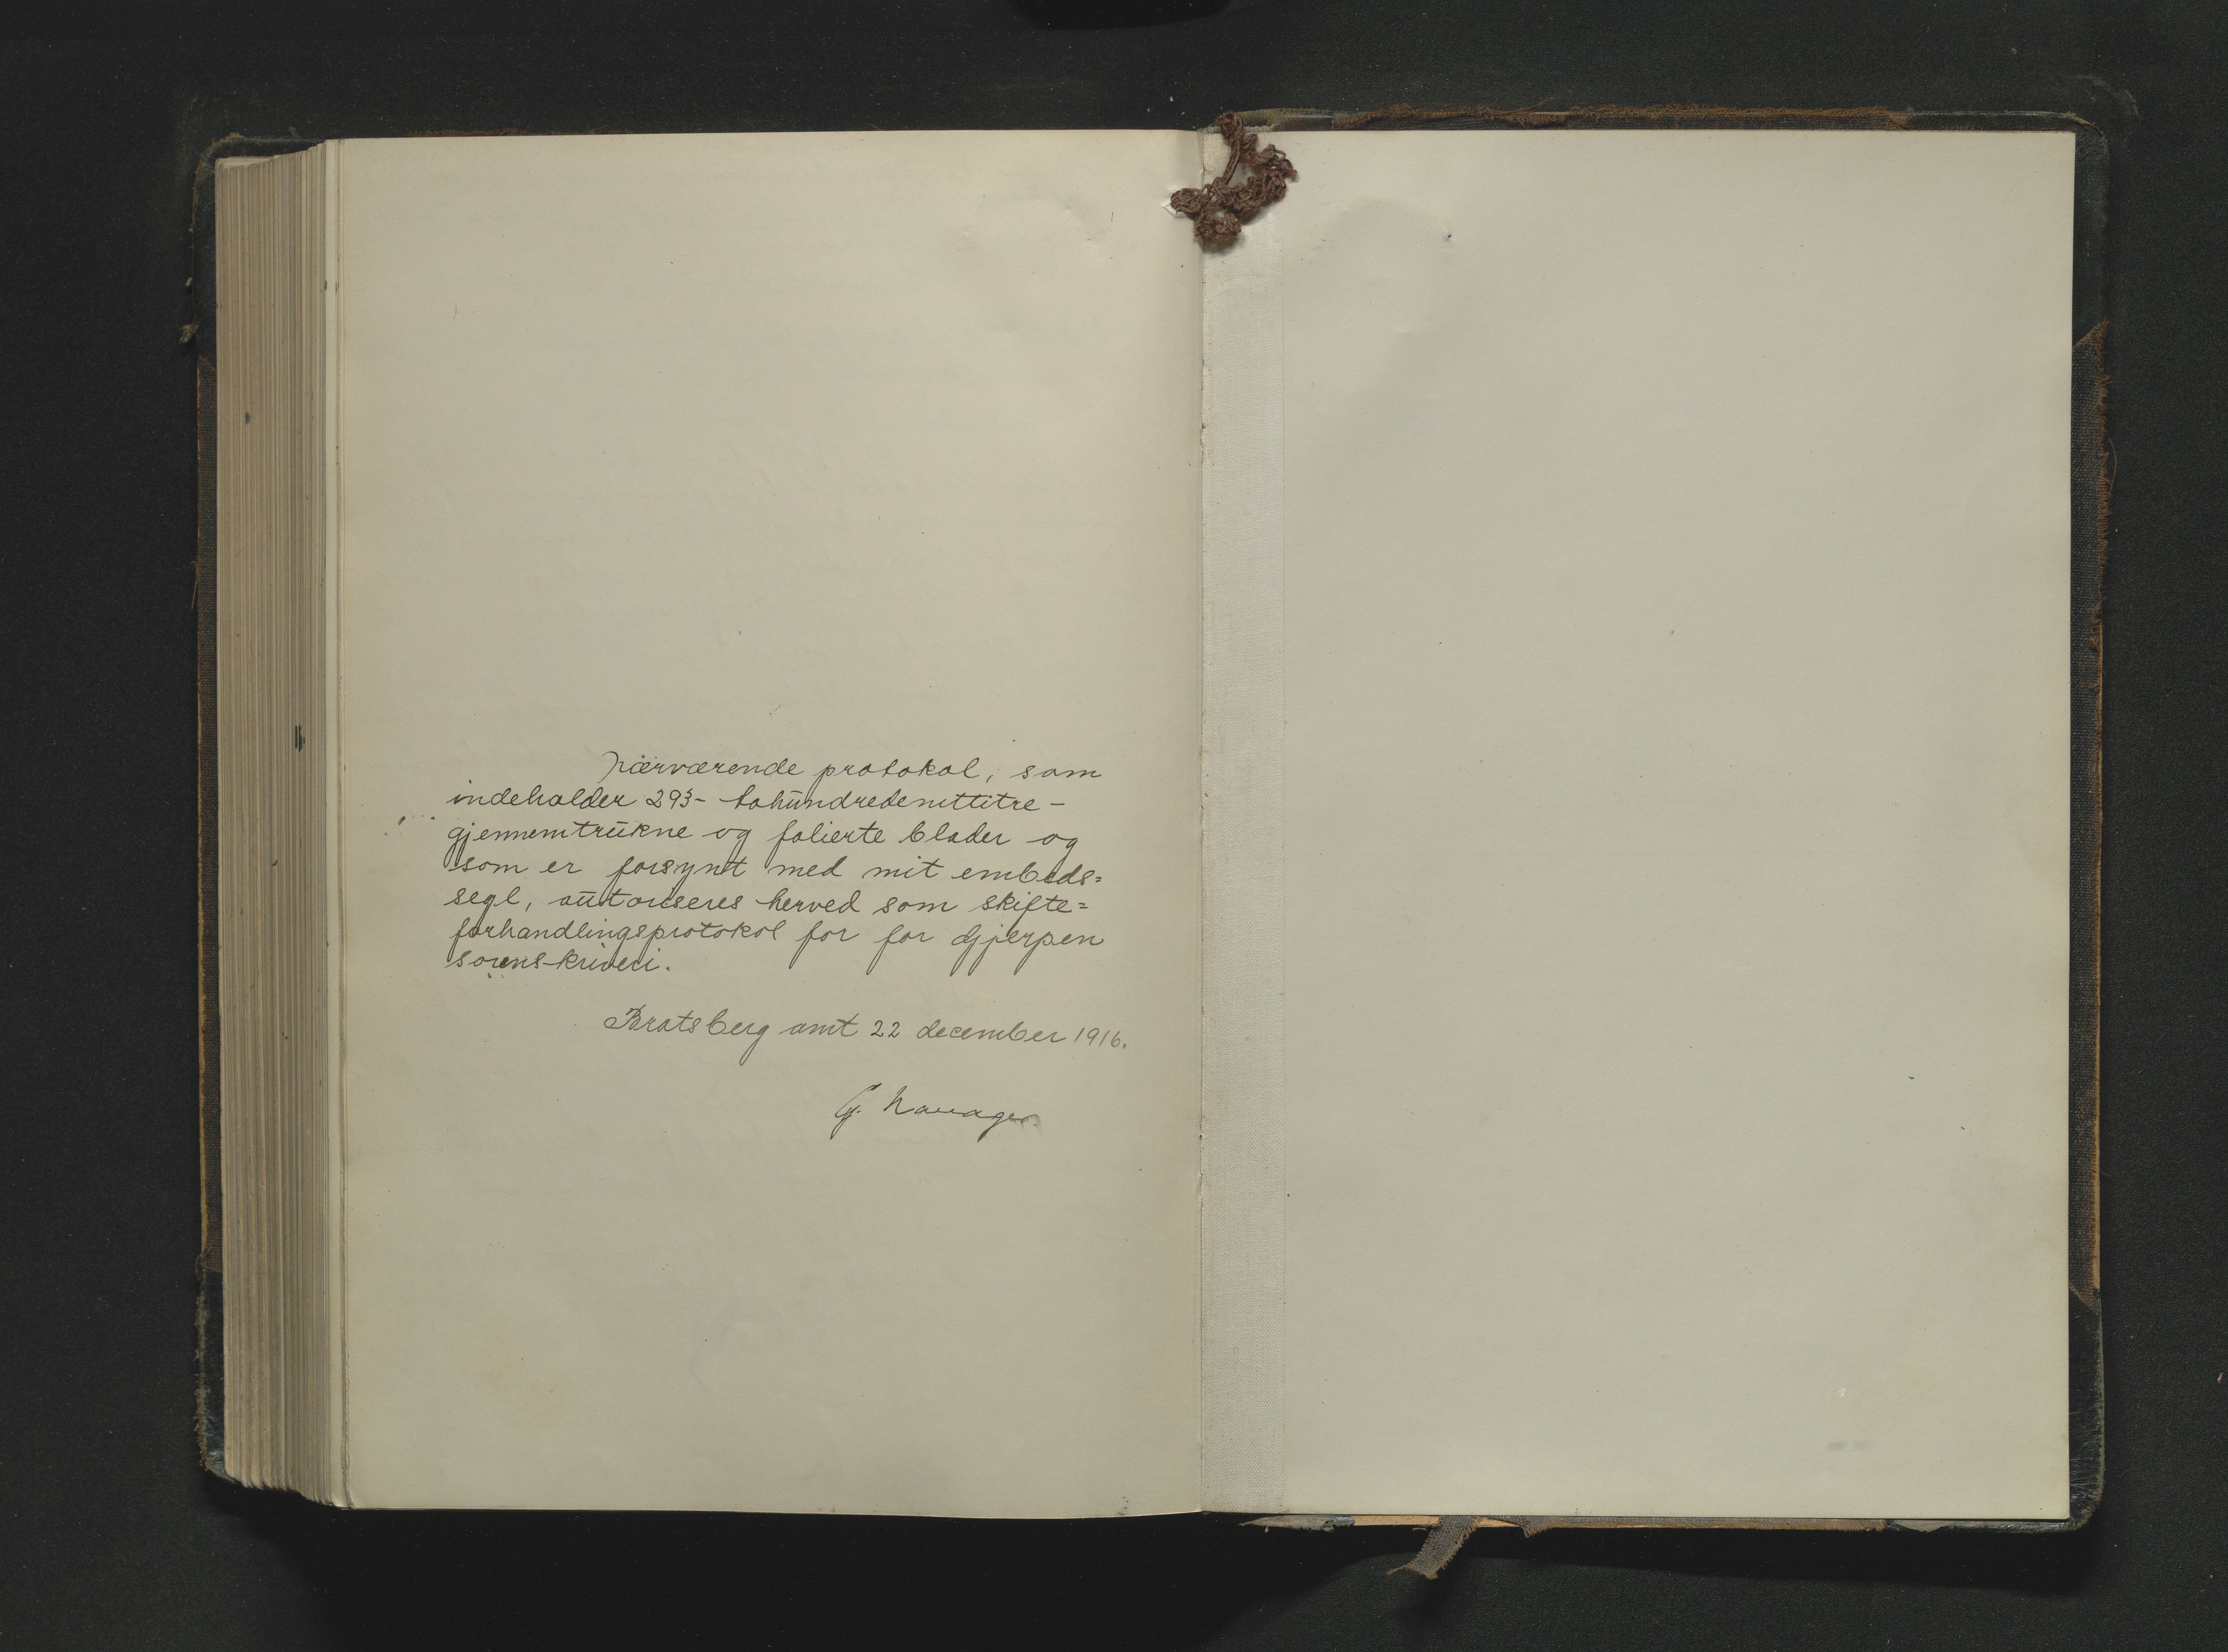 Nærværende protokol, som
indeholder 293 - tohundredenittitre -
gjennemtrukne og folierte blader og
som er forsynt med mit embeds=
segl, autoriseres herved som skifte=
forhandlingsprotokol for for Gjerpen
sorenskriveri.
Bratsberg amt 22 december 1916.